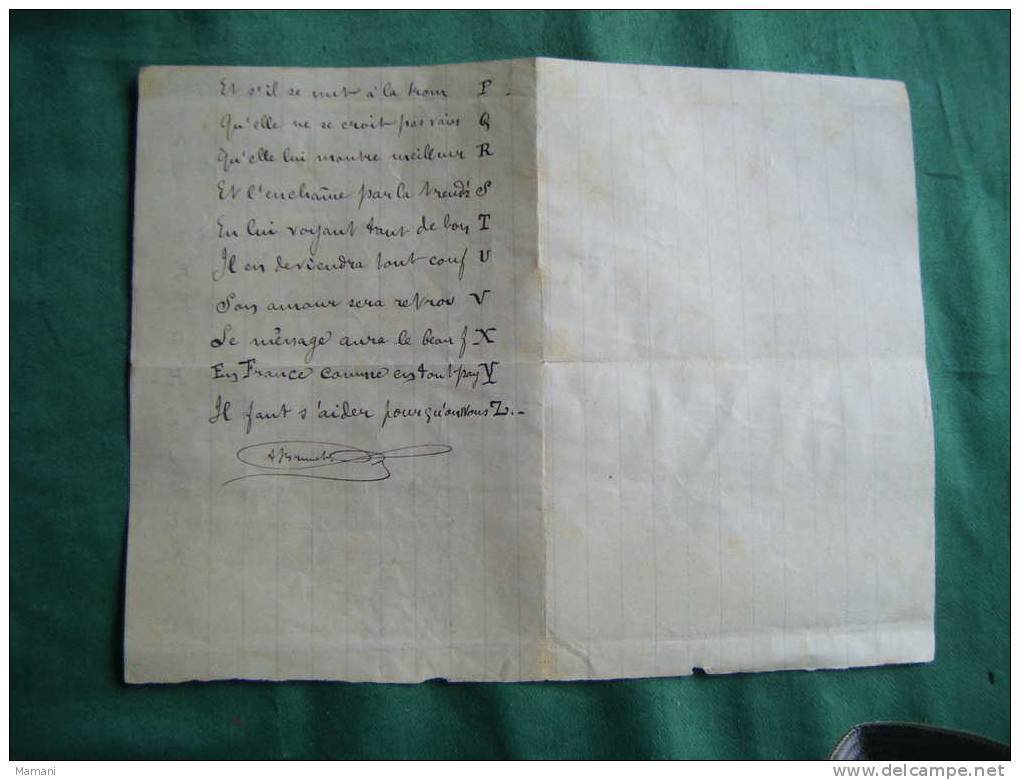 Et s'il se met à la trom P.
Qu'elle ne se croit pas vain Q
Qu'elle lui montre meilleur R
Et l'enchaîne par la trend S
En lui voyant tant de bon T
Il en deviendra tout conf U
Son amour sera retrou V
Le ménage aura le beau f X
En France comme en tout pay Y
Il faut s'aider pour qu'on vous Z.-
Mamani
www.delcampe.net